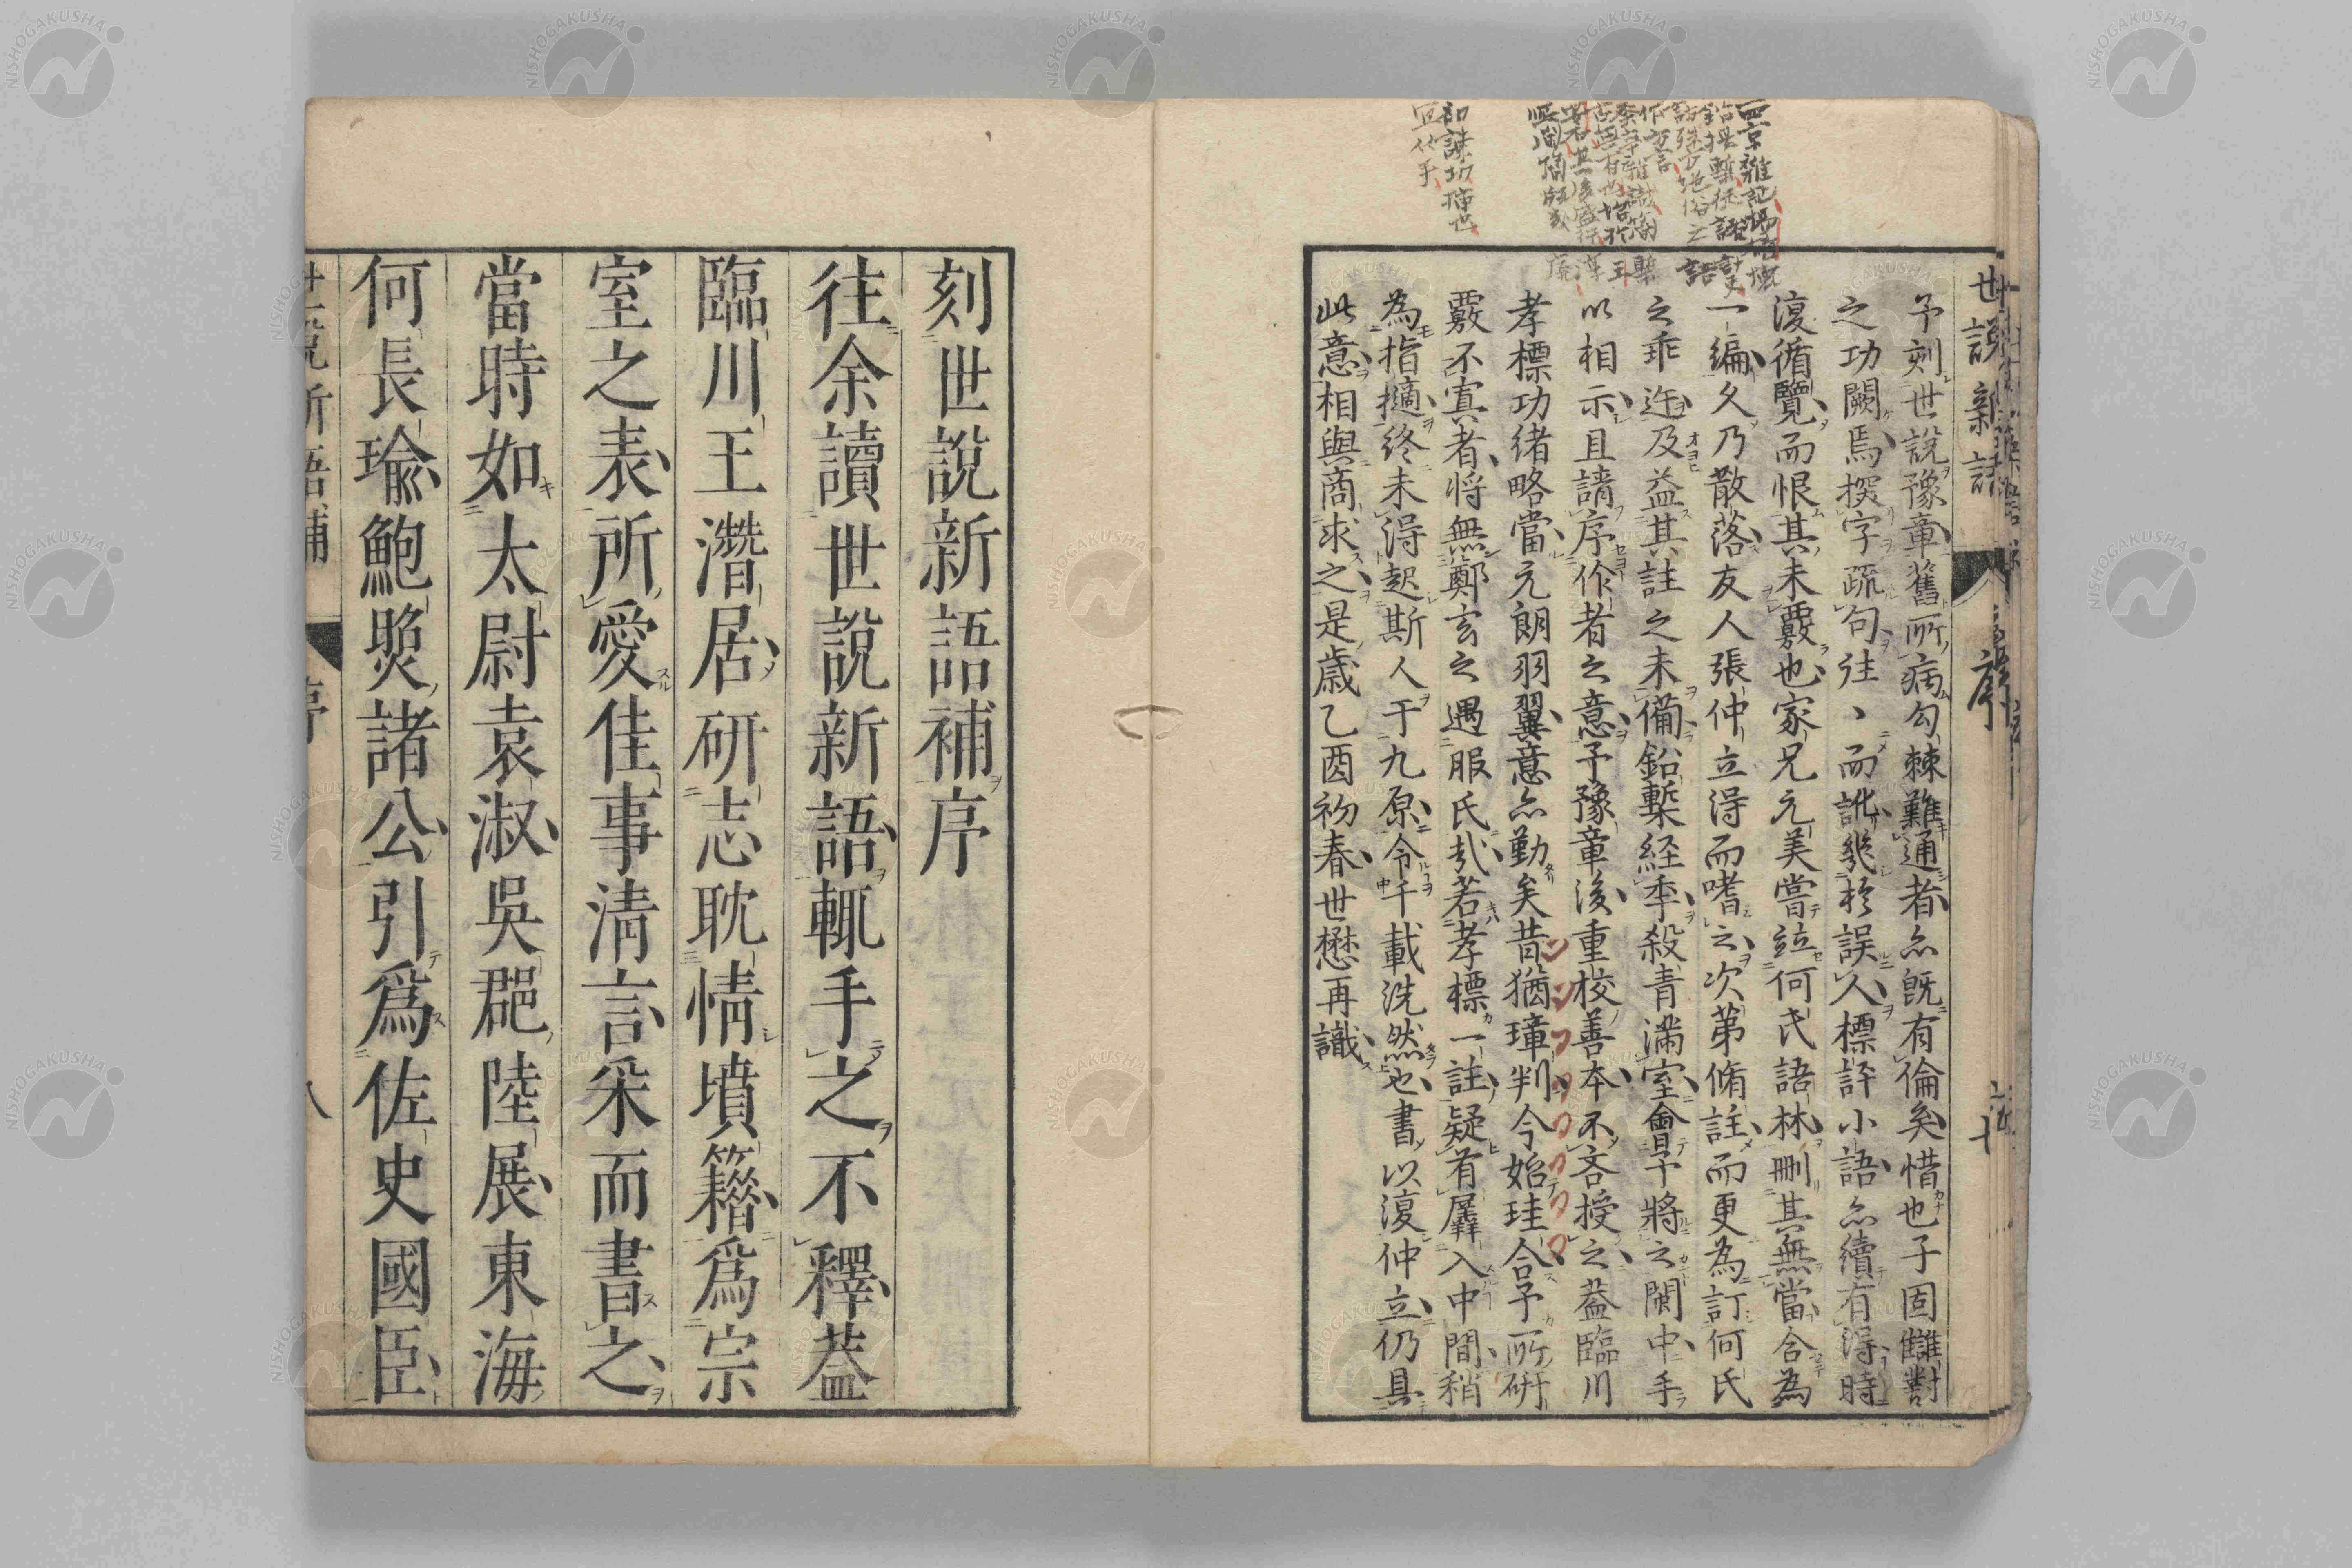 世說新語
序
予刻世說豫章舊所病勾棘難通者亦既有倫矣惜也子固讎對
之功闕焉撰字疏句往丶而訛幾於誤人標評小語亦續有得時
復循覽而恨其未覈也家兄元美嘗竝何氏語林刪其無當合為
一編久乃散落友人張仲立得而嗜之次第脩註而更為訂何氏
之乖迕及益其註之未備鉛槧経季殺青滿室會予將之閩中手
以相示且請序作者之意予豫章後重校善本不吝授之葢臨川
孝標功緒略當元朗羽翼意亦勤矣昔猶璋判今始珪合予所研
覈不寘者將無鄭玄之遇服氏哉若孝標一註疑有羼入中間稍
為指擿終未得起斯人于九原令千載洗然也書以復仲立仍具
此意相與商求之是歲乙酉初春世懋再識
刻世說新語補序
往余讀世說新語輒手之不釋葢
臨川王濳居研志耽情墳籍爲宗
室之表所愛佳事清言采而書之
當時如太尉袁淑吳郡陸展東海
何長瑜鮑照諸公引爲佐史國臣
世說新語補
序
八
NISHOGAKUSHA